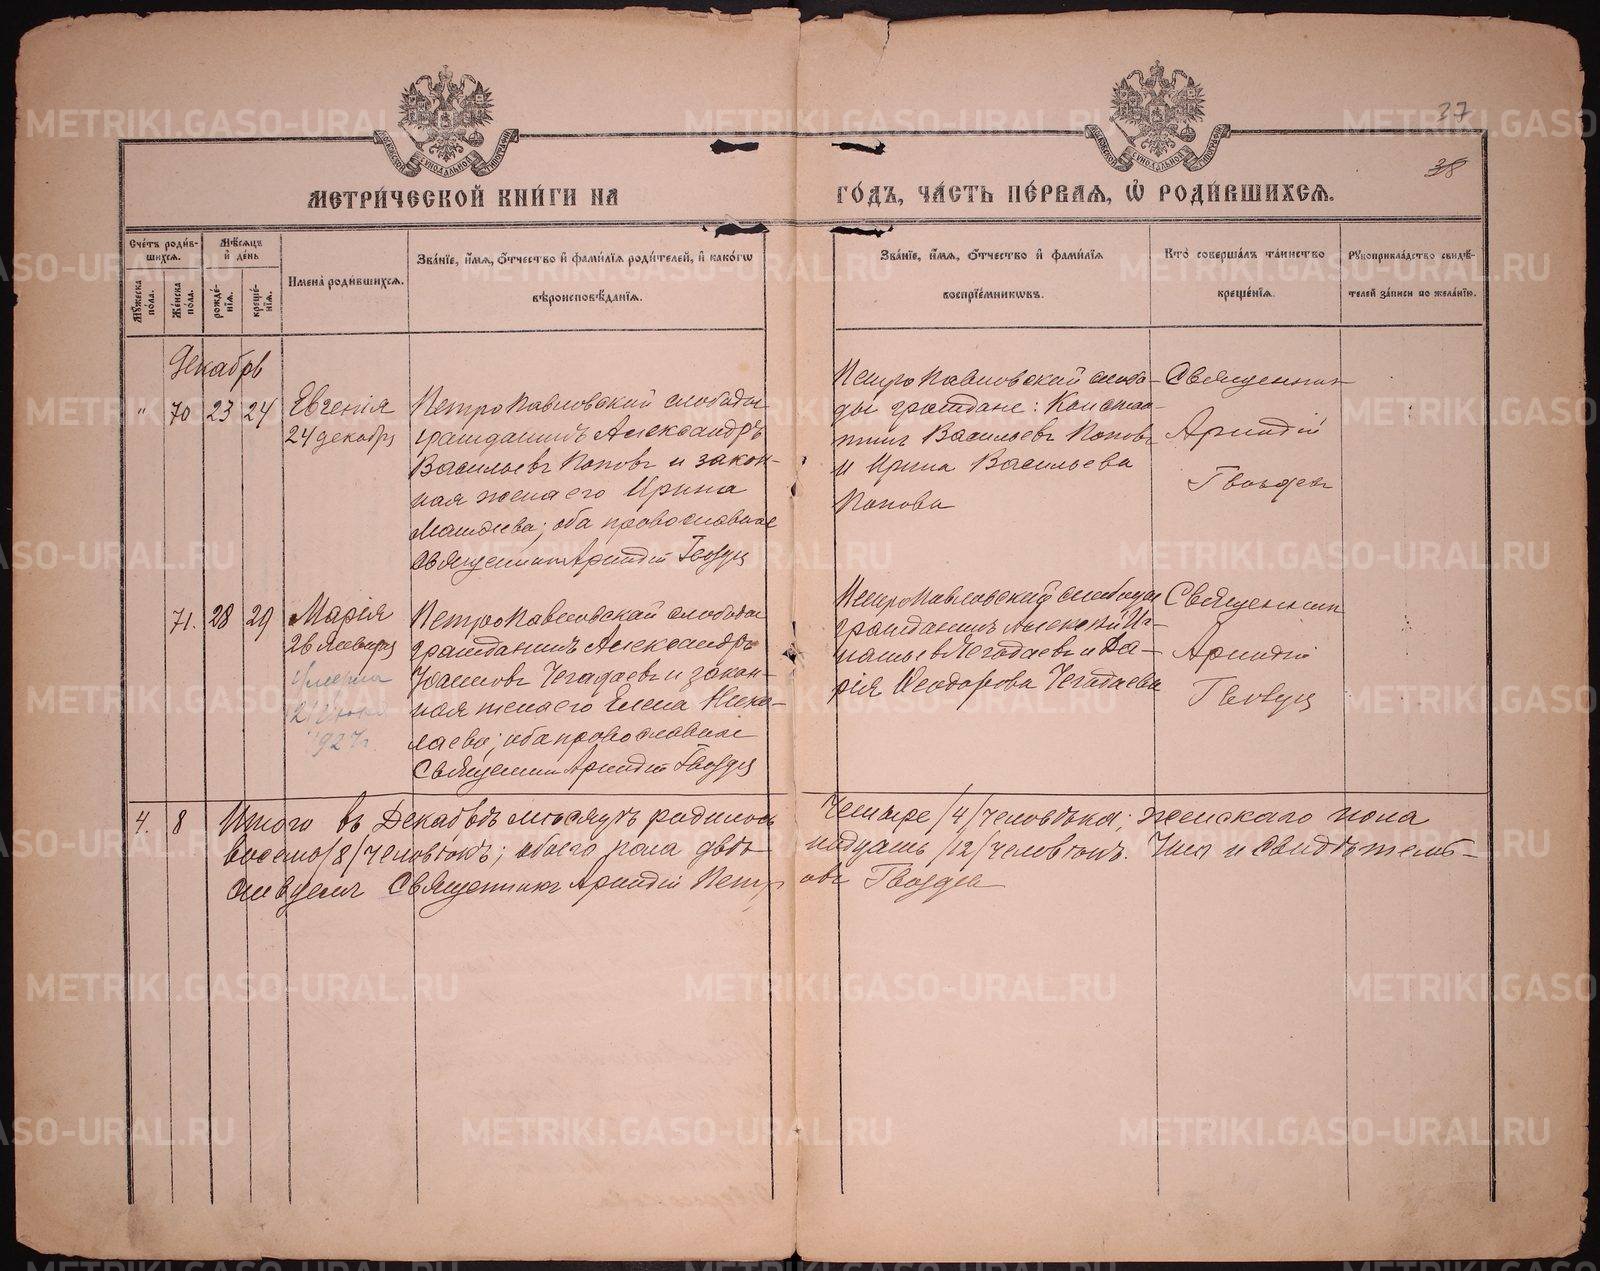 37
38
МЕТРИ́ЧЕСКОЙ КНИ́ГИ НА ГО́ДЪ, ЧА́СТЬ ПЕ́РВАЯ, Ѡ РОДИ́ВШИХСЯ.
Сче́тъ роди́в-
шихся.
Мꙋ́жеска по́ла.
Же́нска по́ла.
Мѣ́сяцъ и де́нь
рожде́-
нїя.
креще́-
нїя.
Имена̀ роди́вшихся.
Зва́нїе, и́мя, ѻ́тчество и фами́лїя роди́телей, и како́гѡ
вѣроисповѣ́данїя.
Зва́нїе, и́мя, ѻ́тчество и фами́лїя
воспрїе́мникѡвъ.
Кто̀ соверша́лъ та́инство
креще́нїя.
Рꙋкоприкла́дство свидѣ́-
телей за́писи по жела́нїю.
Декабрь
" 70 23 24
Евгенія
24 декабря
Петропавловской слободы
гражданинъ Александръ
Васильевъ Поповъ и закон-
ная жена его Ирина
оба православные
Священникъ Аркадій Гвоздев
Петропавловской слобо-
ды граждане: Констан-
тинъ Васильевъ Поповъ
и Ирина Васильева
Попова
Священник
Аркадій
Гвоздев
71. 28 29
Марія
26 января
умерла
1927г.
Петропавловской слободы
гражданинъ Александръ
Чегадаевъ и закон-
ная жена его Елена Нико-
лаева; оба православные
Священник Аркадій Гвоздев
Петропавловской слободы
гражданинъ Алексѣй Иг-
натьевъ Чегодаевъ и Да-
рія Ѳеодорова Чегодаева
Священник
Аркадій
Гвоздев
4. 8 Итого въ Декабрѣ мѣсяцѣ родилось Четыре /4/ человѣка; женскаго пола
восемь /8/ человѣкъ; обоего пола двѣ- надцать /12/ человѣкъ. Въ
Священникъ Аркадій Петр овъ Гвоздев
METRIKI.GASO-URAL.RU